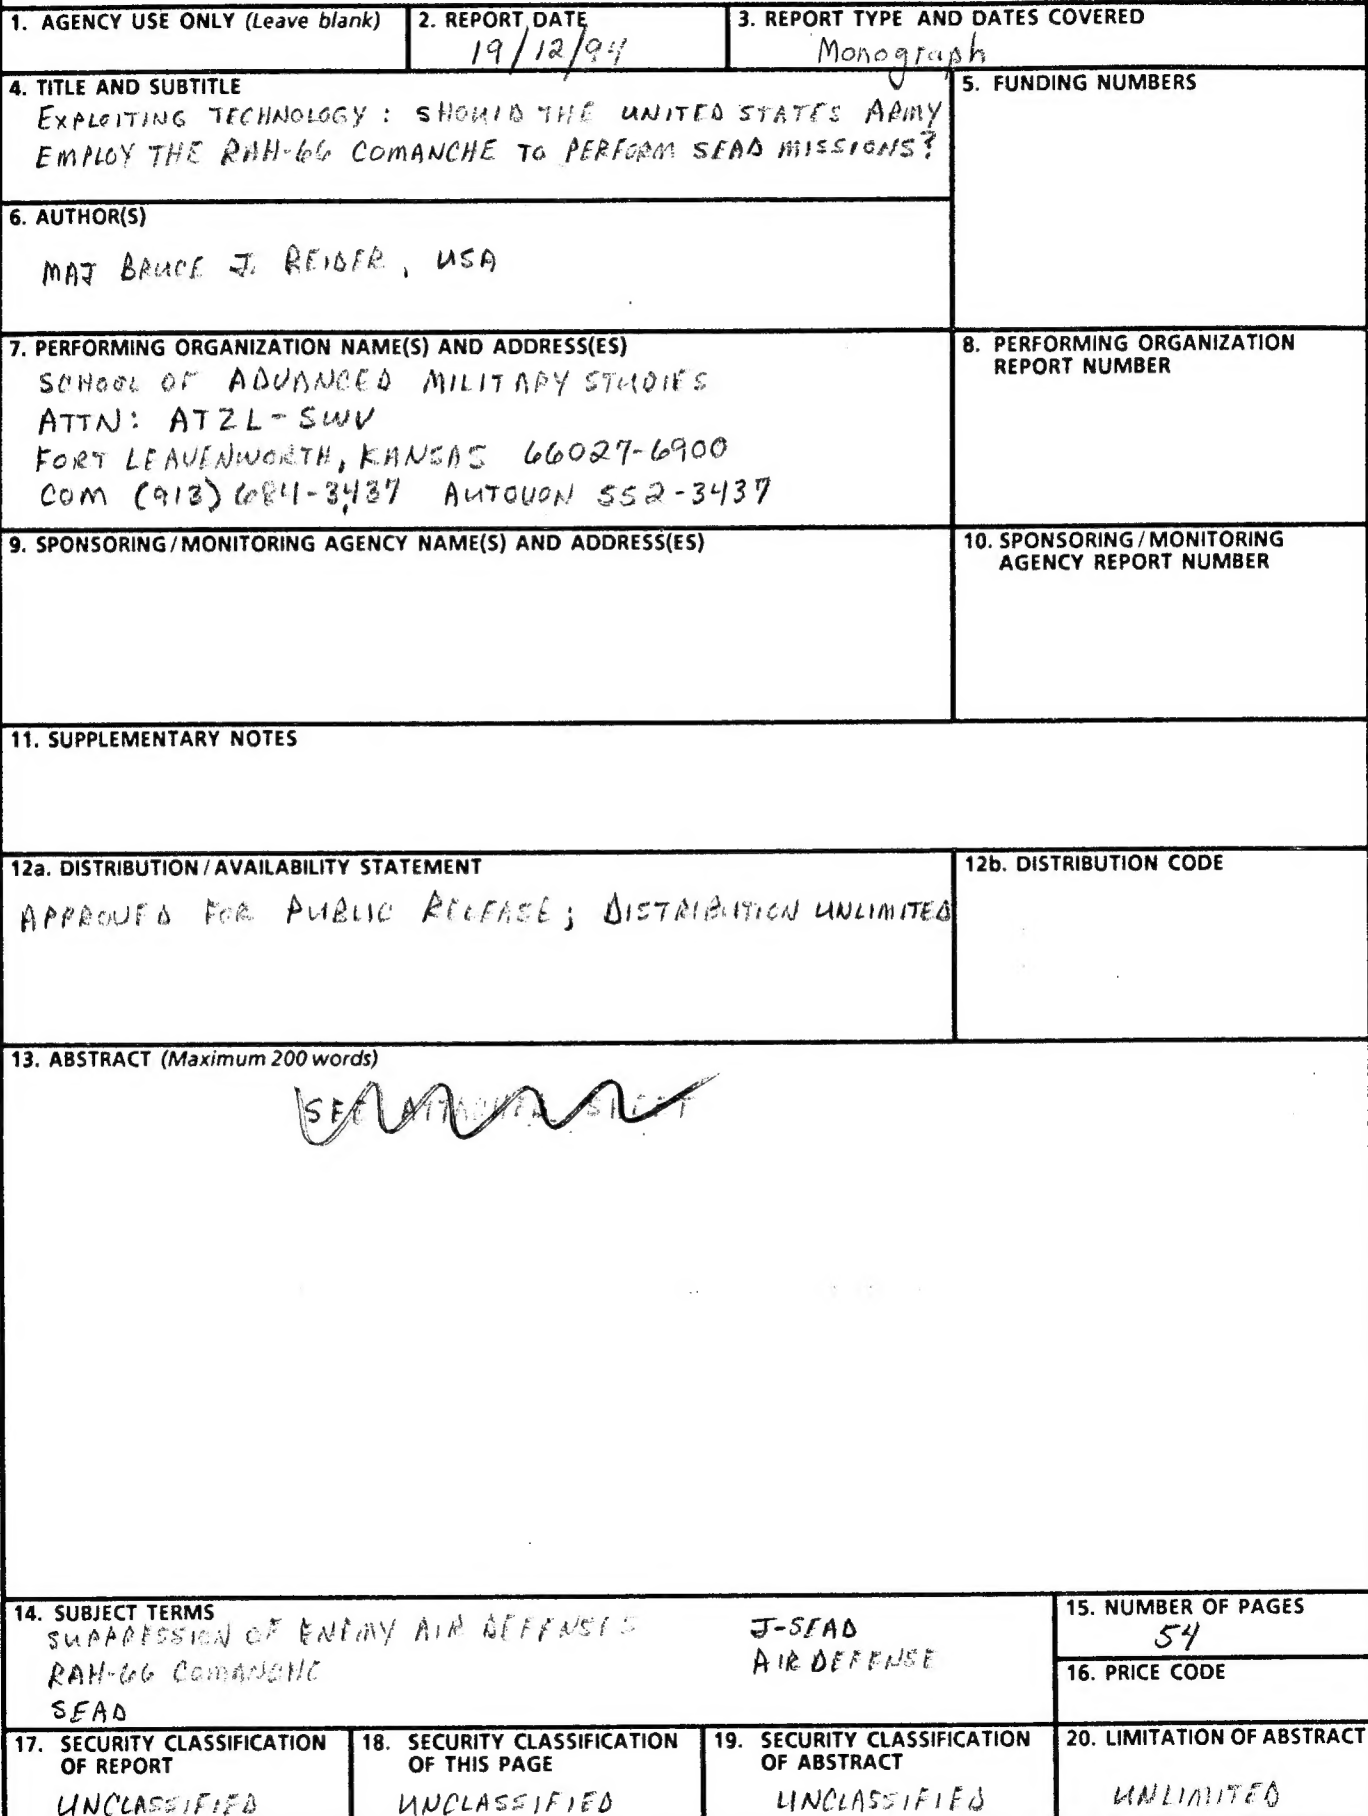 1. AGENCY USE ONLY (Leave blank)
2. REPORT DATE
19/12/94
3. REPORT TYPE AND DATES COVERED
Monograph
4. TITLE AND SUBTITLE
EXPLOITING TECHNOLOGY: SHOULD THE UNITED STATES ARMY
EMPLOY THE RAH-66 COMANCHE TO PERFORM SEAD MISSIONS?
5. FUNDING NUMBERS
6. AUTHOR(S)
MAJ BRUCE J. REIDER, USA
7. PERFORMING ORGANIZATION NAME(S) AND ADDRESS(ES)
SCHOOL OF ADVANCED MILITARY STUDIES
ATTN: ATZL-SWV
FORT LEAVENWORTH, KANSAS 66027-6900
COM (913) 684-3437 AUTOVON 552-3437
8. PERFORMING ORGANIZATION
REPORT NUMBER
9. SPONSORING/MONITORING AGENCY NAME(S) AND ADDRESS(ES)
10. SPONSORING/MONITORING
AGENCY REPORT NUMBER
11. SUPPLEMENTARY NOTES
12a. DISTRIBUTION/AVAILABILITY STATEMENT
APPROVED FOR PUBLIC RELEASE; DISTRIBUTION UNLIMITED
12b. DISTRIBUTION CODE
13. ABSTRACT (Maximum 200 words)
SEE ATTACHED SHEET
14. SUBJECT TERMS
SUPPRESSION OF ENEMY AIR DEFENSES
RAH-66 COMANCHE
SEAD
J-SEAD
AIR DEFENSE
15. NUMBER OF PAGES
54
16. PRICE CODE
17. SECURITY CLASSIFICATION
OF REPORT
UNCLASSIFIED
18. SECURITY CLASSIFICATION
OF THIS PAGE
UNCLASSIFIED
19. SECURITY CLASSIFICATION
OF ABSTRACT
UNCLASSIFIED
20. LIMITATION OF ABSTRACT
UNLIMITED